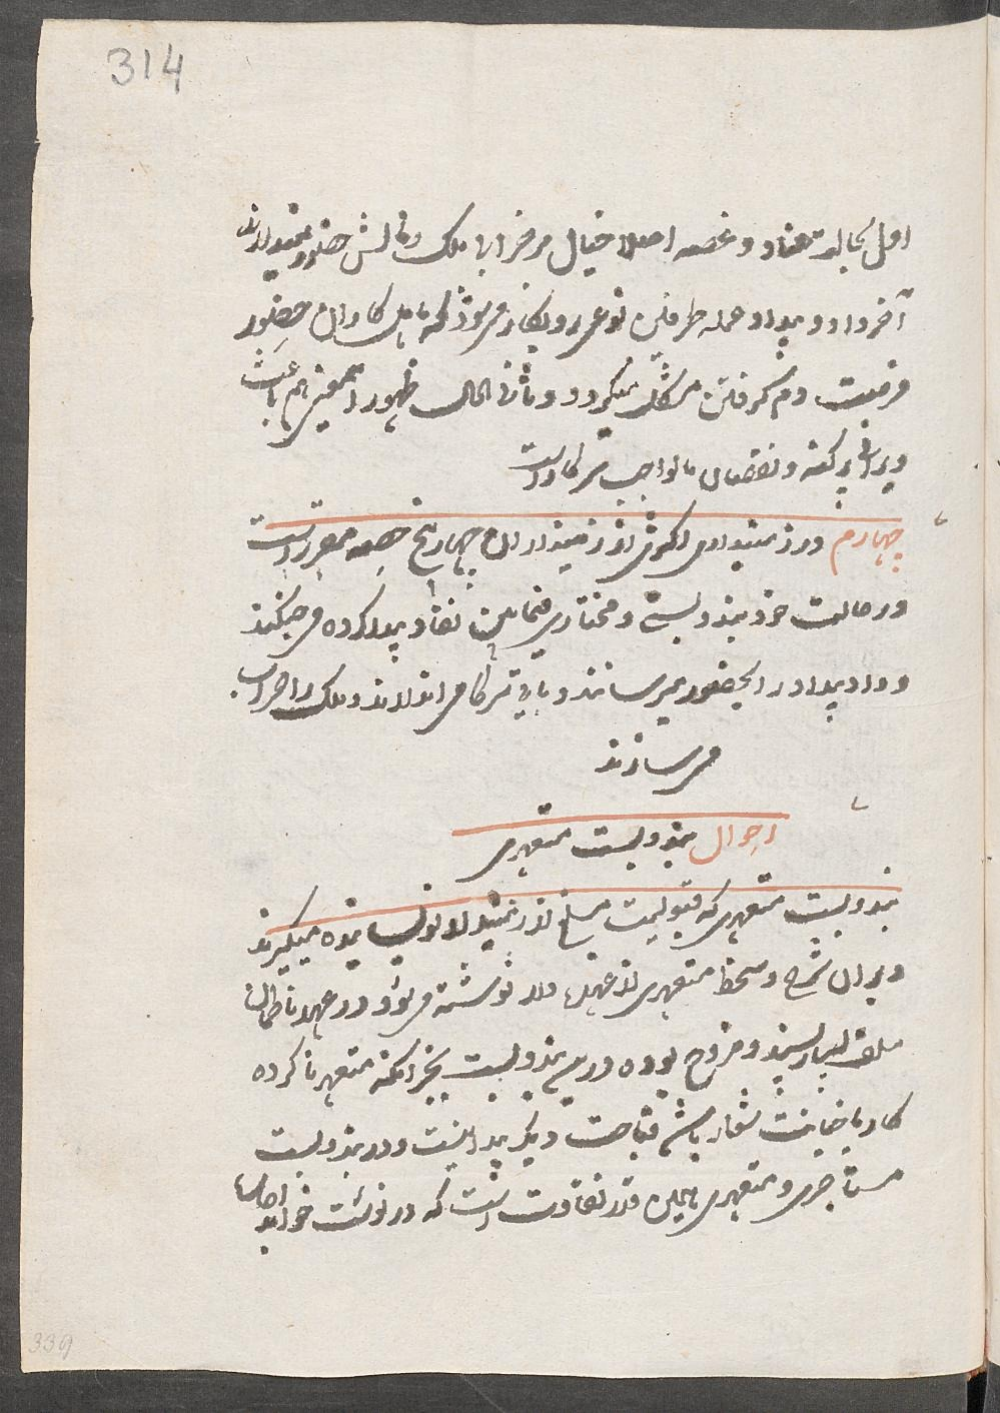 314
اول بحالت عناد و غصه اصلا خیال مر خرابی ملک و مالش حضور نمیدارند
آخر داد و بیداد عمله طرفین نوعی روبکار می شود که عامل کاردان حضور
فرصت دم گرفتن مشکل میگردد و ثانی الحال ظهور اینمعنی هم باعث
ویرانی پرگنه و نقصان مالواجب سرکار است
چهارم در زمینداری اکثری از زمینداران چهار پنج حصه مقرر است
در حالت خود بندوبست و مختاری فیمابین نفاق پیدا کرده می جنگند
و داد بیداد را بحضور میرسانند و باقی سرکار می اندازند و ملک را خراب
می سازند
احوال بندوبست متعهدی
بندوبست متعهدی که قبولیت مبلغ از زمیندار نویسانیده میگیرند
و بران شرح دستخط متعهدی از عهده دار نوشته می شود در عهد ناظمان
سلف بسیار پسند و مروج بوده درین بندوبست بجز اینکه متعهد ناکرده
کار یا خیانت شعار باشد قباحت دیگر پیدا نیست و در بندوبست
مستاجری و متعهدی همین قدر تفاوت است که در نوشت خواند
339